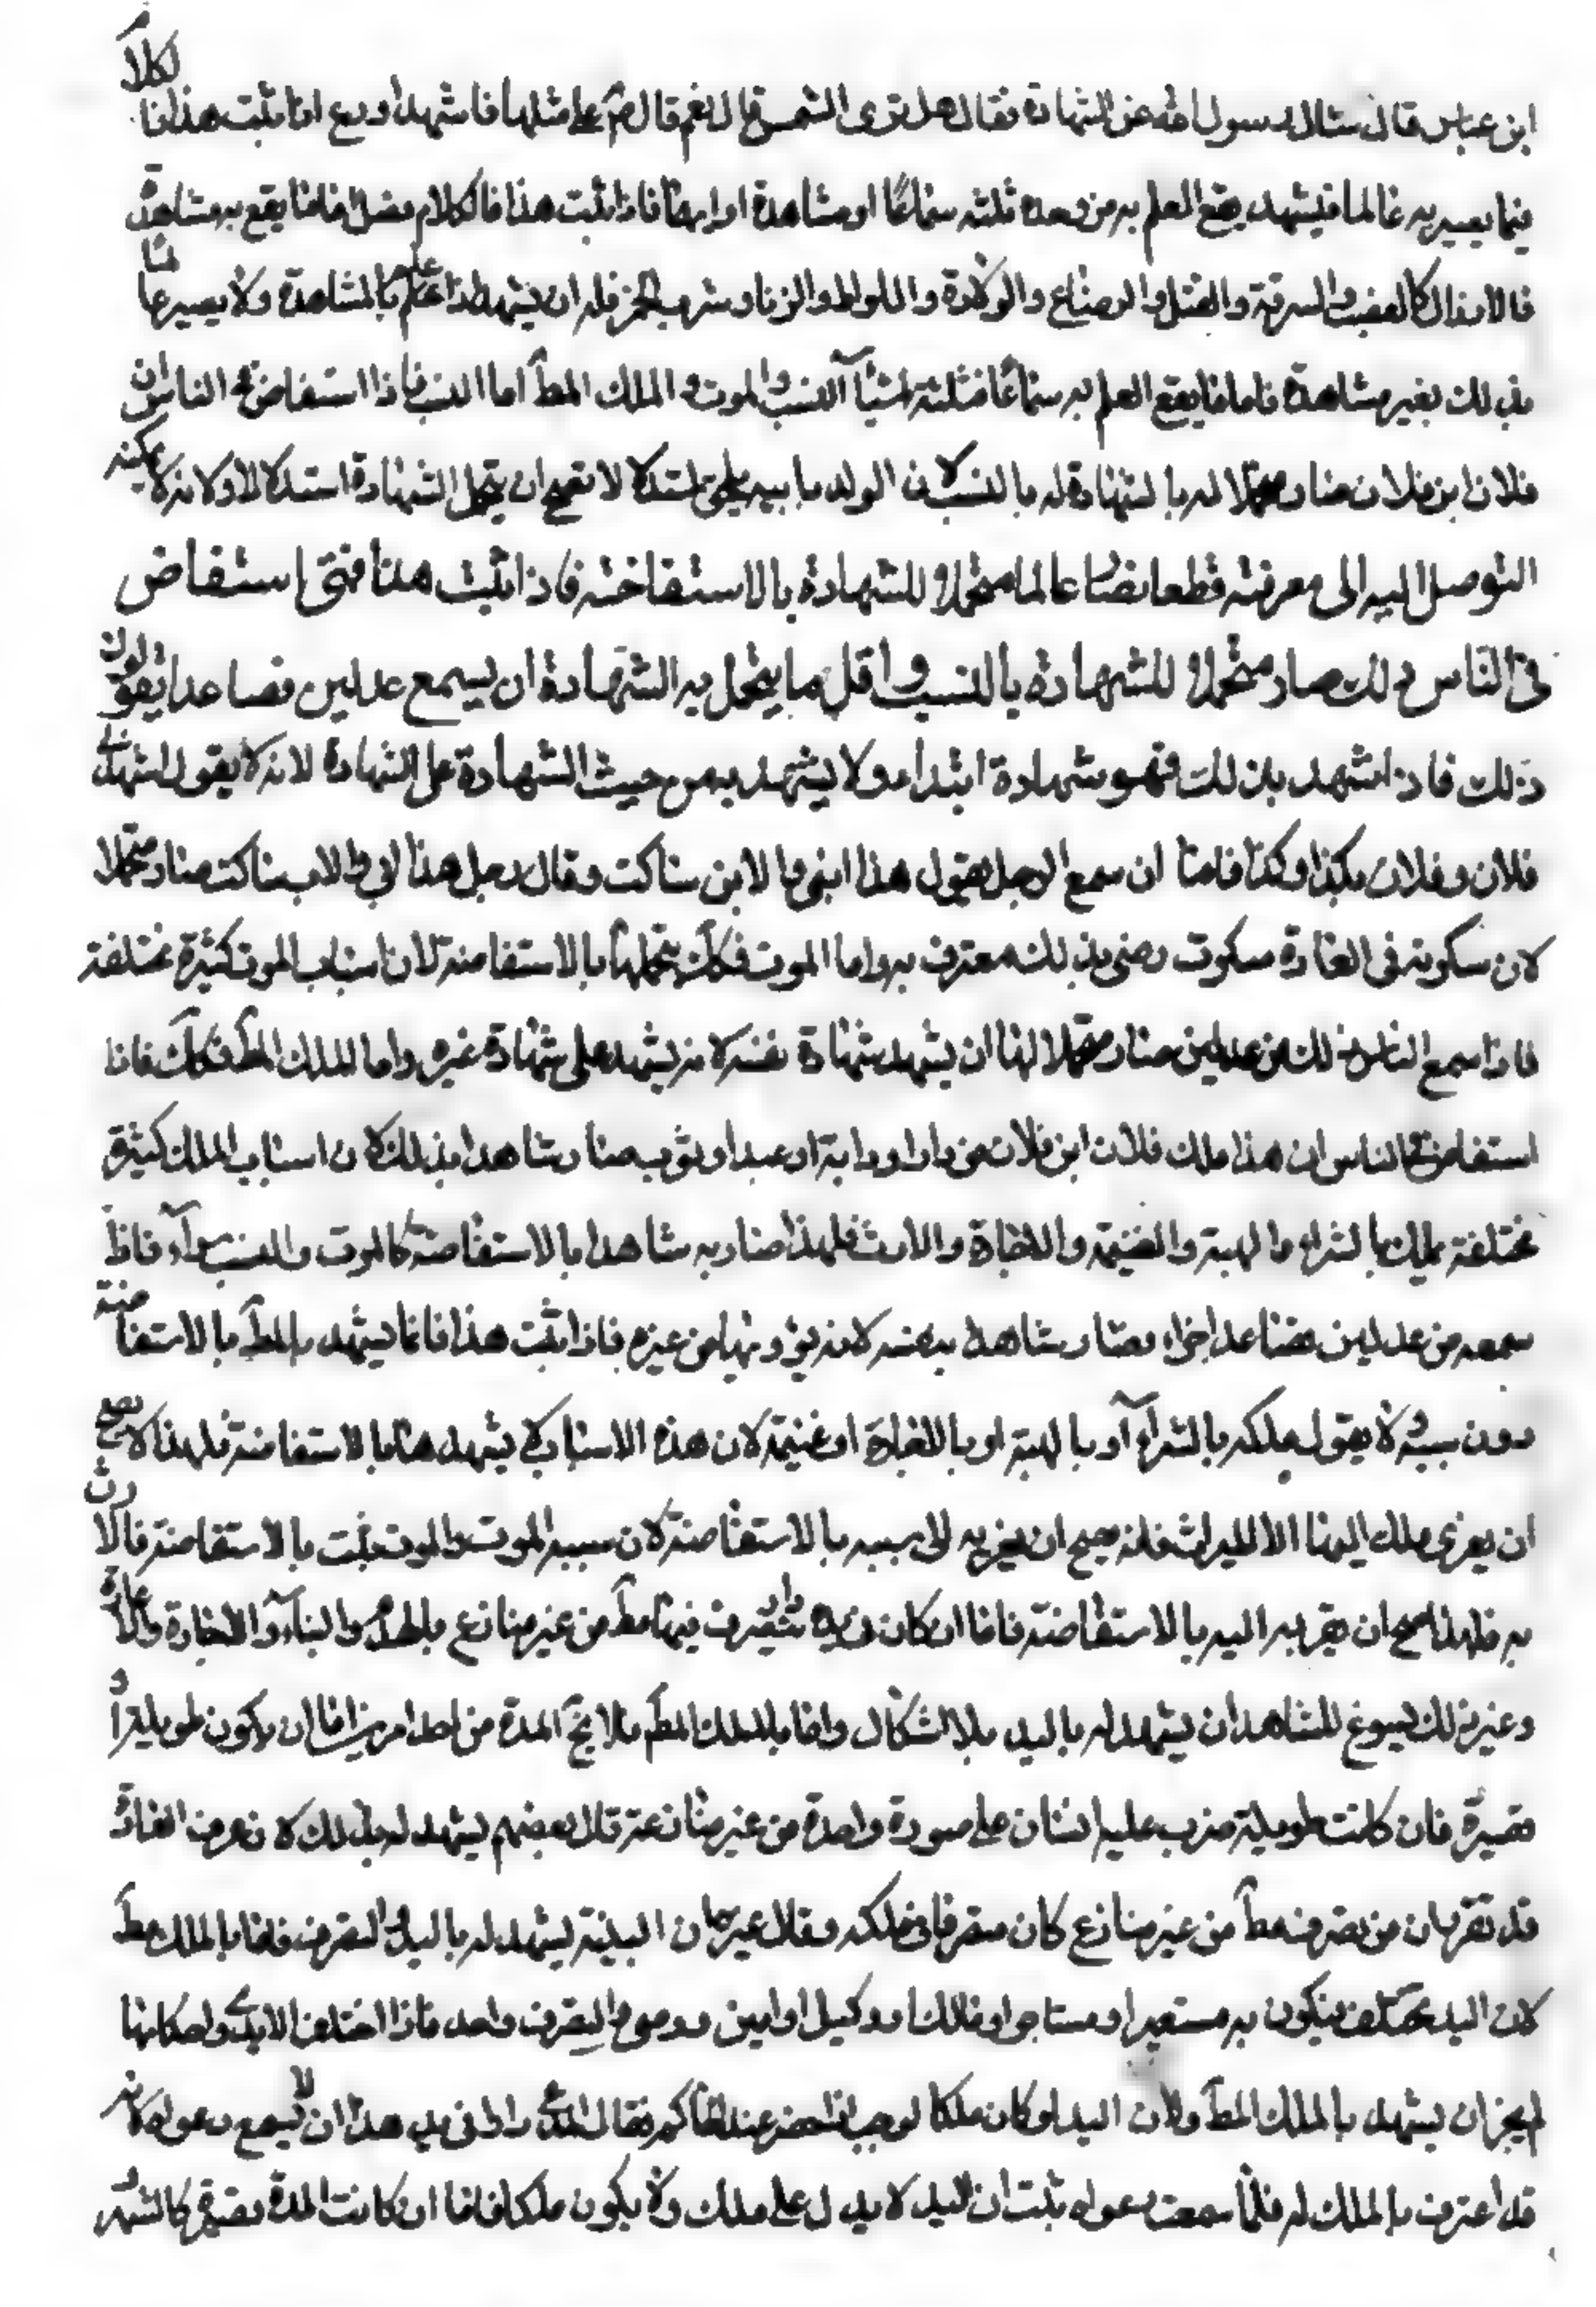 ابن عباس قال سئل رسول الله عن الشهادة فقال هل ترى الشمس قال نعم قال على مثلها فاشهد او دع اما ثبت هذا فالكلا
فيما يصير به عالما فيشهد يقع العلم به من وجوه ثلثة سماعا او مشاهدة او بهما فاذا ثبت هذا فالكلام فصل فاما ما يقع به مشاهدة
فالافعال كالغصب والسرقة والقتل والرضاع والولادة واللواط والزنا وشرب الخمر فله ان يشهد اذا علم بالمشاهدة ولا يصير عالما
بذلك بغير مشاهدة فاما ما يقع العلم به سماعا فثلثة اشيآء النسب والموت والملك المط اما النسب فاذا استفاض في الناس ان
فلان ابن فلان صار متحملا له بالشهادة له بالنسب لان الولد بابيه يلحق استدلالا فصح ان يتحمل الشهادة استدلالا ولانه لا يمكنه
التوصل اليه الى معرفته قطعا فصار عالما متحملا للشهادة بالاستفاضة فاذا ثبت هذا فمتى استفاض
في الناس ذلك صار متحملا للشهادة بالنسب واقل ما يتحمل به الشهادة ان يسمع عدلين فصاعدا يقولون
ذلك فاذا شهد بذلك فهو شهادة ابتداء ولا يشهد به من حيث الشهادة على الشهادة لانه لا يقول اشهدني
فلان وفلان بكذا وكذا فاما ان سمع الرجل يقول هذا ابني والابن ساكت وقال رجل هذا ابي والاب ساكت صار متحملا
لان سكوته في العادة سكوت رضى بذلك معترف به واما الموت فكك يتحملها بالاستفاضة لان اسباب الموت كثيرة مختلفة
فاذا سمع الناس ذلك من عدلين صار متحملا لها ان يشهد شهادة نفسه لا من يشهد على شهادة غيره واما الملك المط فكك فاذا
استفاض في الناس ان هذا ملك فلان ابن فلان من دار او دابة او عبد او ثوب صار شاهدا بذلك لان اسباب الملك كثيرة
مختلفة يملك بالشراء والهبة والغنيمة والاحياء والارث فلهذا صار به شاهدا بالاستفاضة كالموت والنسب سوآء فاذا
سمعه من عدلين فصاعدا اجزاء وصار شاهدا بنفسه لانه يؤديها من غيره فاذا ثبت هذا فانما يشهد بالمط بالاستفاضة
دون سببه لا يقول ملكه بالشرآء او بالهبة او بالاحياء او غنيمة لان هذه الاسباب لا يشهد هنا بالاستفاضة فلهذا لا يصح
ان يعزى ملك اليها الا الميراث فانه يصح ان يعزيه الى سببه بالاستفاضة لان سببه الموت والموت يثبت بالاستفاضة فالارث
به فلهذا صح ان يعزيه اليه بالاستفاضة فاما ان كان في يده دار يتصرف فيها مط من غير منازع بالهدم والبنآء والاجارة والاعارة
وغير ذلك يسوغ للشاهد ان يشهد له باليد بلا اشكال واما بالملك المط فلا يخ المدة من احد امرين اما ان يكون طويلة او
قصيرة فان كانت طويلة مرت عليه السنان على صورة واحدة من غير منازعة قال بعضهم يشهد له بذلك لان عرف العادة
قد تقرر ان من تصرف مط من غير منازع كان متصرفا في ملكه وقال غيرهم ان البينة يشهد له باليد والتصرف فاما بالملك مط
لان اليد تختلف فيكون يد مستعير او مستاجر او مالك او وكيل او امين ووصي والتصرف واحد فاذا اختلف الايدي واحكامها
لم يجز ان يشهد بالملك المط ولان اليد لو كان ملكا لوجب اذا حضر عند الحاكم فقال المدعي دار لي في يد هذا ان لا يسمع دعواه لانه
قد اعترف بالملك له فلما سمعت دعواه ثبت ان اليد لا يدل على ملك ولا يكون ملكا فاما ان كانت المدة قصيرة كالشهر